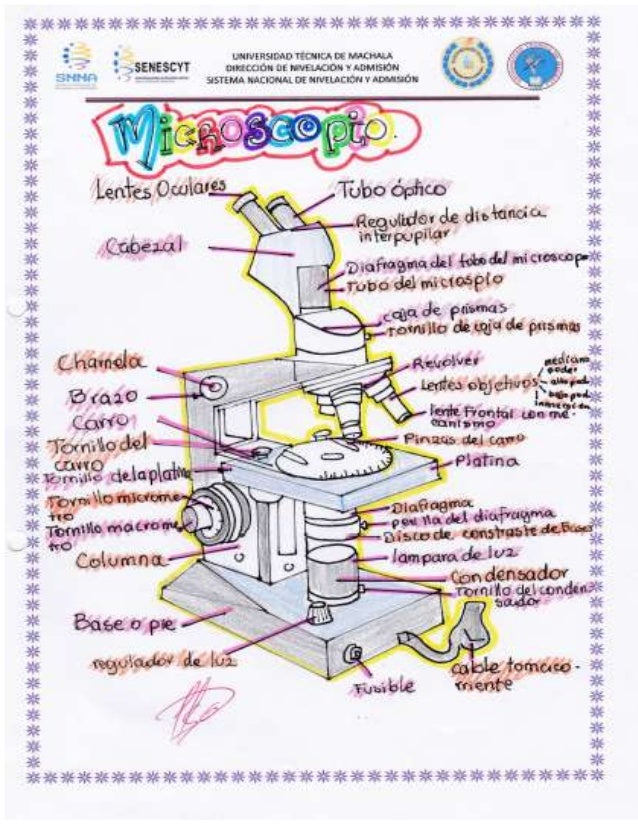 SNNA
SENESCYT
UNIVERSIDAD TÉCNICA DE MACHALA
DIRECCIÓN DE NIVELACIÓN Y ADMISIÓN
SISTEMA NACIONAL DE NIVELACIÓN Y ADMISIÓN
Microscopio.
Lentes Oculares
Cabezal
Charnela
Brazo
Carro
Tornillo del
carro
Tornillo de la platina
Tornillo microme
tro
Tornillo macrome
tro
Columna
Base o pie
regulador de luz
Tubo óptico
Regulador de distancia
interpupilar
Diafragma del tubo del microscopio
Tubo del microspio
caja de prismas
Tornillo de caja de prismas
Revolver
Lentes objetivos
mediano
poder
alto pod
bajo pod
inmersion
lente Frontal con me
canismo
Pinzas del carro
Platina
Diafragma
perilla del diafragma
Disco de constraste de Bases
lampara de luz
Condensador
Tornillo del conden
sador
cable tomaco-
rriente
Fusible